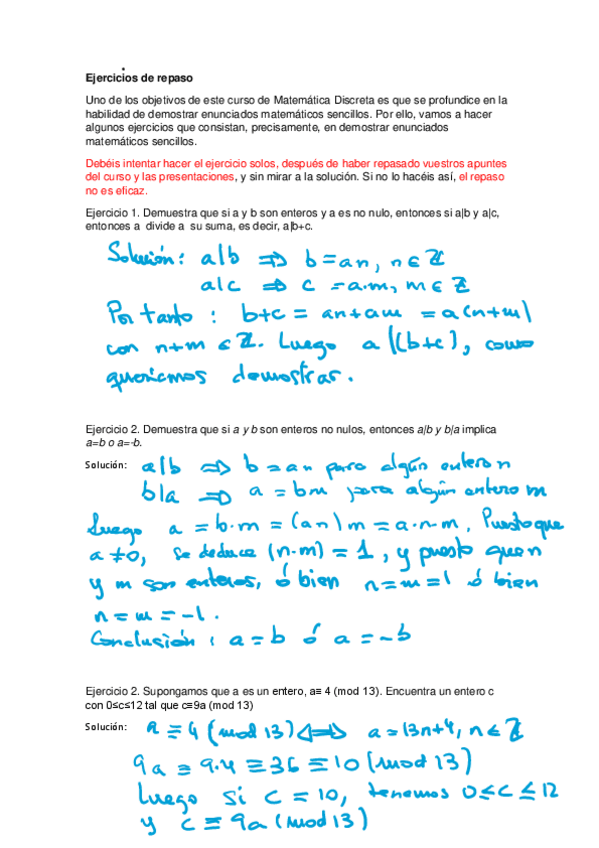 Ejercicios de repaso
Uno de los objetivos de este curso de Matemática Discreta es que se profundice en la
habilidad de demostrar enunciados matemáticos sencillos. Por ello, vamos a hacer
algunos ejercicios que consistan, precisamente, en demostrar enunciados
matemáticos sencillos.
Debéis intentar hacer el ejercicio solos, después de haber repasado vuestros apuntes
del curso y las presentaciones, y sin mirar a la solución. Si no lo hacéis así, el repaso
no es eficaz.
Ejercicio 1. Demuestra que si a y b son enteros y a es no nulo, entonces si a|b y a|c,
entonces a divide a su suma, es decir, a|b+c.
Solución: a|b ⟹ b=an, n∈ℤ
a|c ⟹ c=a·m, m∈ℤ
Por tanto: b+c = an+am = a(n+m)
con n+m∈ℤ. Luego a|(b+c), como
queríamos demostrar.
Ejercicio 2. Demuestra que si a y b son enteros no nulos, entonces a|b y b|a implica
a=b o a=-b.
Solución: a|b ⟹ b=an para algún entero n
b|a ⟹ a=bm para algún entero m
Luego a=b·m=(an)m=a·n·m. Puesto que
a≠0, se deduce (n·m)=1, y puesto que n
y m son enteros, ó bien n=m=1 ó bien
n=m=-1.
Conclusión: a=b ó a=-b
Ejercicio 2. Supongamos que a es un entero, a≡ 4 (mod 13). Encuentra un entero c
con 0≤c≤12 tal que c≡9a (mod 13)
Solución: a≡4(mod 13) ⟺ a=13n+4, n∈ℤ
9a≡9·4≡36≡10(mod 13)
Luego si c=10, tenemos 0≤c≤12
y c≡9a(mod 13)